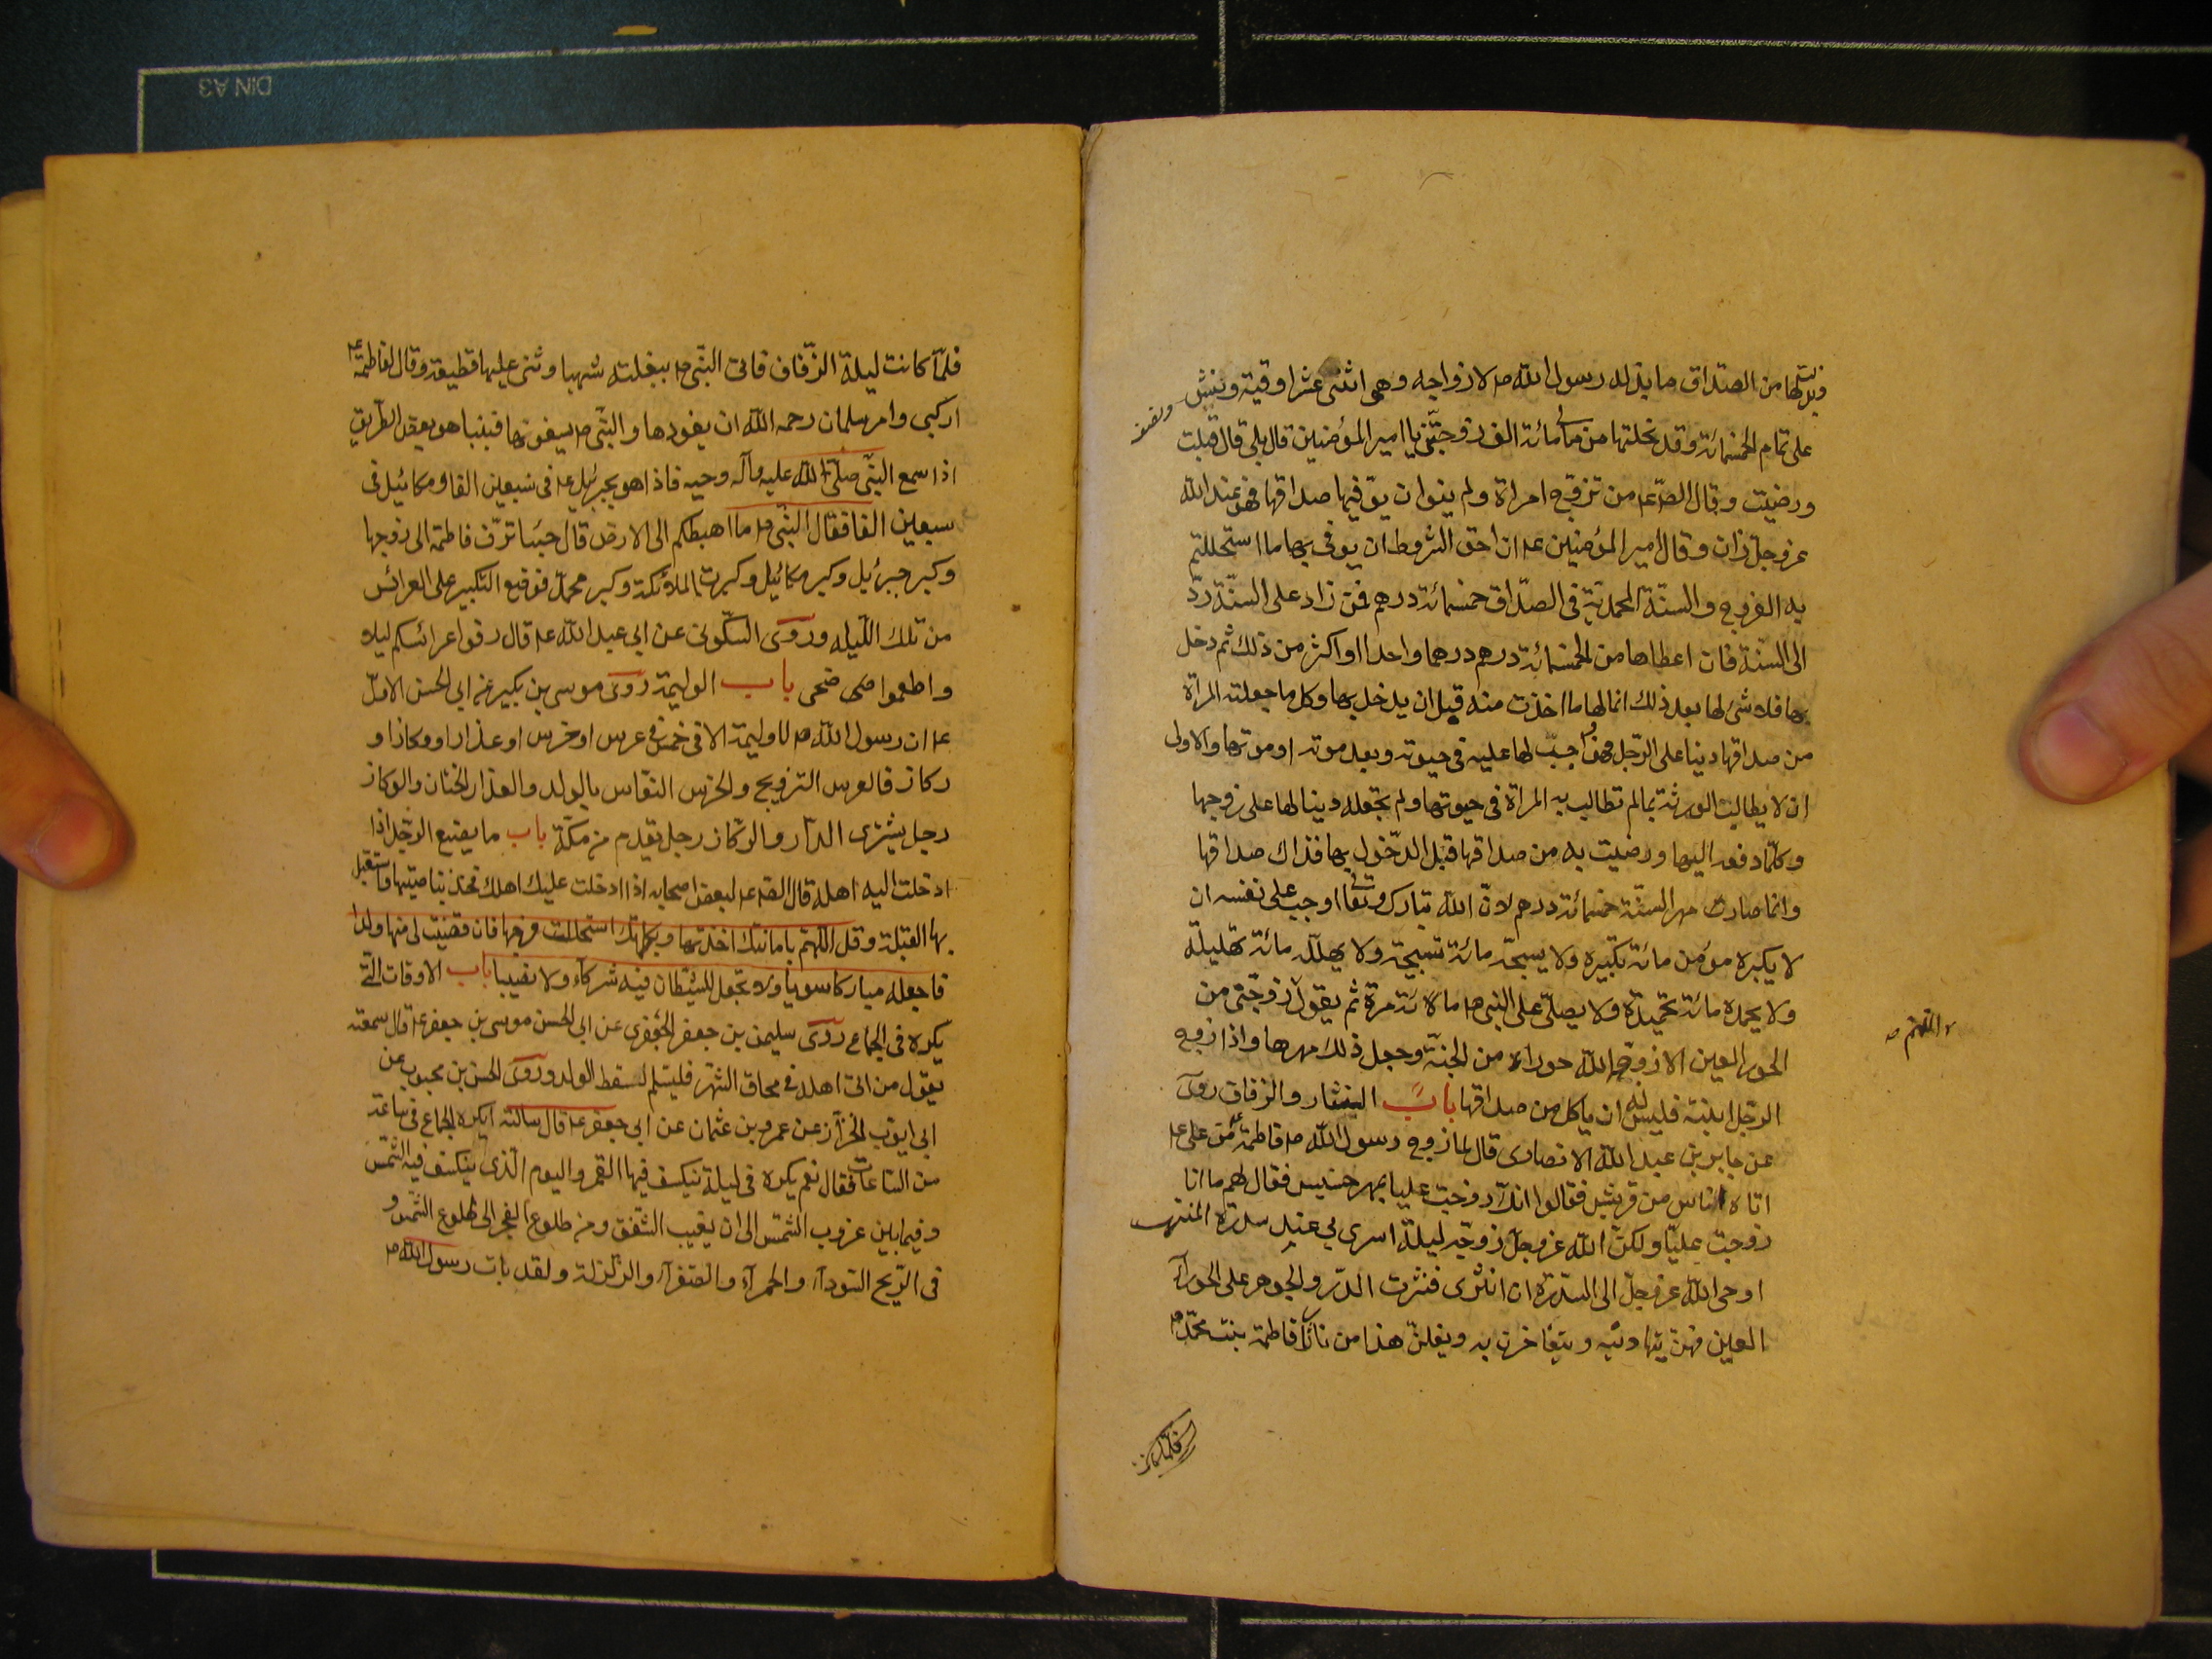 وبذلت لها من الصداق ما بذله رسول الله ص لازواجه وهى اثنتى عشر اوقية ونش
ونصف
على تمام الخمسمائة وقد نحلتها من مالى مائة الف زوجتنى يا امير المؤمنين قال بلى قال قبلت
ورضيت وقال الصّ ع من تزوّج امراة ولم ينو ان يوفيها صداقها فهو عند الله
عز وجل زان وقال امير المؤمنين ع ان احق الشروط ان يوفى بها ما استحللتم
به الفروج والسنّة المحمديّة فى الصّداق خمسمائة درهم فمن زاد على السنّة ردّ
الى السنة فان اعطاها من الخمسمائة درهم درهما واحدا او اكثر من ذلك ثم دخل
بها فلا شئ لها بعد ذلك انما لها ما اخذت منه قبل ان يدخل بها وكل ما جعلته المراة
من صداقها دينا على الرّجل فهو واجب لها عليه فى حيوته وبعد موته او موتها والاولى
ان لا يطالب الورثة بما لم تطالب به المراة فى حيوتها ولم تجعله دينا لها على زوجها
وكلّما دفعه اليها ورضيت به من صداقها قبل الدّخول بها فذاك صداقها
وانما صارت مهر السنّة خمسمائة درهم لانّ الله تبارك وتعالى اوجب على نفسه ان
لا يكبره مؤمن مائة تكبيرة ولا يسبحه مائة تسبيحة ولا يهلله مائة تهليلة
ولا يحمده مائة تحميدة ولا يصلّى على النبى ص مائة مرة ثم يقول زوجنى من
اللّهم ص
الحور العين الا زوجه الله حوراء من الجنّة وجعل ذلك مهرها واذا زوج
الرّجل ابنته فليس له ان ياكل من صداقها باب النثار والزفاف روى
عن جابر بن عبد الله الانصارى قال لما زوج رسول الله ص فاطمة ع من على ع
اتاه اناس من قريش فقالوا انك زوجت عليا بمهر خسيس فقال لهم ما انا
زوجت عليّا ولكنّ الله عزوجلّ زوّجه ليلة اسرى بى عند سدرة المنتهى
اوحى الله عزوجلّ الى السدرة ان انثرى فنثرت الدّر والجوهر على الحور
العين فهنّ يتهادينه ويتفاخرن به ويقلن هذا من نثار فاطمة بنت محمّد ص
فلما كانت
فلمّا كانت ليلة الزّفاف فاتى النّبى ص ببغلته شهبا وثنى عليها قطيفة وقال لفاطمة ع
اركبى وامر سلمان رحمه الله ان يقودها والنّبى ص يسوقها فبينما هو بعض الطّريق
اذا سمع النّبى صلّى الله عليه وآله وجبة فاذا هو بجبرئيل ع فى سبعين الفا ومكائيل فى
سبعين الفا فقال النّبى ص ما اهبطكم الى الارض قال جئنا نزفّ فاطمة الى زوجها
وكبر جبرئيل وكبر مكائيل وكبرت الملائكة وكبر محمّد فوقع التكبير على العرائس
من تلك اللّيله وروى السّكونى عن ابى عبد الله ع قال زفوا عرائسكم ليلا
واطعموا ضحى ضحى باب الوليمة روى موسى بن بكير عن ابى الحسن الاول
ع ان رسول الله ص لا وليمة الا فى خمس فى عرس او خرس او عذار او وكاز او
ركاز فالعرس التزويج والخرس النفاس بالولد والعذار الختان والوكاز
رجل يشترى الدّار والركاز رجل يقدم من مكّة باب ما يصنع الرّجل اذا
ادخلت اليه اهله قال الصّ ع لبعض اصحابه اذا ادخلت عليك اهلك فخذ بناصيتها واستقبل
بها القبلة وقل اللّهمّ بامانتك اخذتها وبكلماتك استحللت فرجها فان قضيت لى منها ولدا
فاجعله مباركا سويا ولا تجعل للشيطان فيه شركا ولا نصيبا باب الاوقات الّتى
يكره فى الجماع روى سليمن بن جعفر الجعفرى عن ابى الحسن موسى بن جعفر ع قال سمعته
يقول من اتى اهله فى محاق الشّهر فليسلم لسقط الولد وروى الحسن بن محبوب عن
ابى ايوب الخزّاز عن عمرو بن عثمان عن ابى جعفر ع قال سالته ايكره الجماع فى ساعة
من الساعات فقال نعم يكره فى ليلة ينكسف فيها القمر واليوم الّذى ينكسف فيه الشّمس
وفيما بين غروب الشّمس الى ان يغيب الشّفق ومن طلوع الفجر الى طلوع الشّمس و
فى الرّيح السّودآء والحمرآء والصّفرآء والزّلزلة ولقد بات رسول الله ص
DIN A3